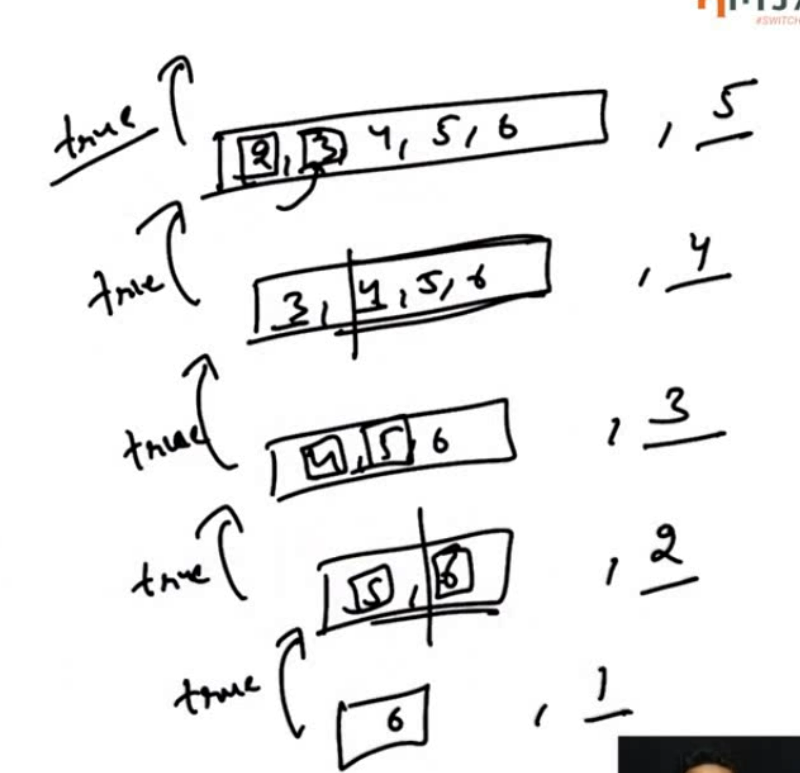 #SWITCH
true 2, 3 4, 5, 6 , 5
true 3, 4, 5, 6 , 4
true 4, 5, 6 , 3
true 5, 6 , 2
true 6 , 1